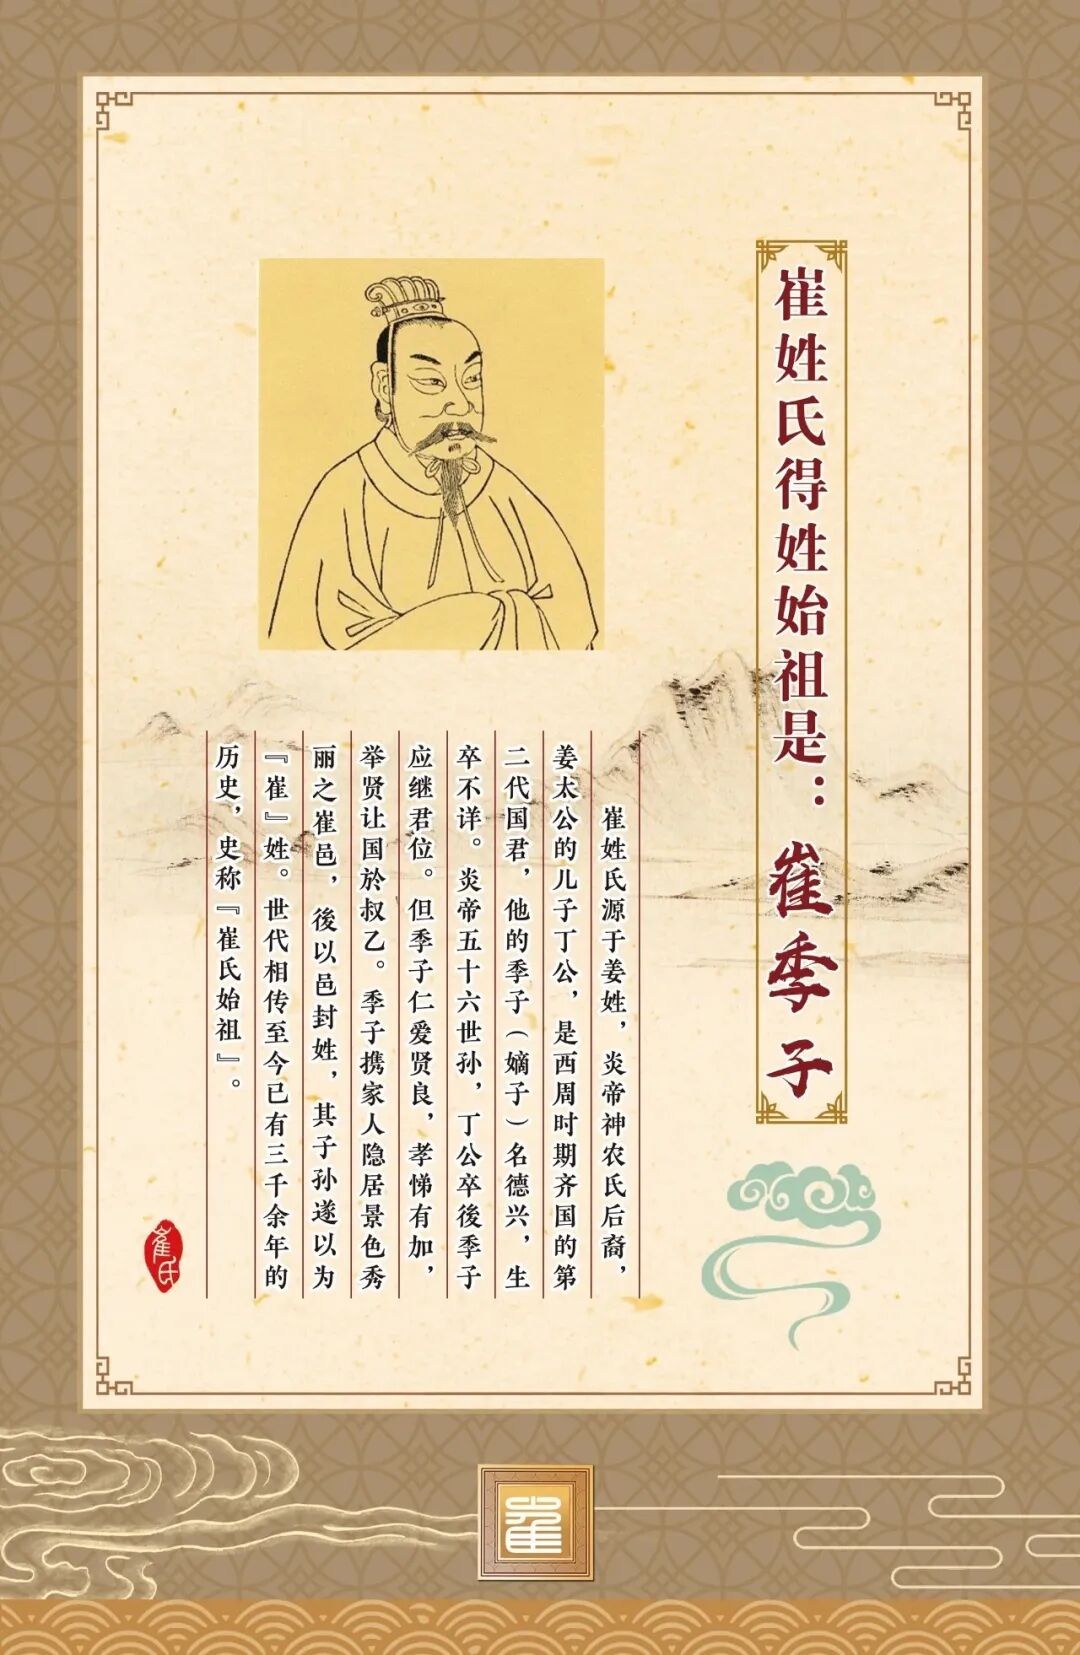 崔姓氏得姓始祖是：崔季子
崔姓氏源于姜姓，炎帝神农氏后裔，
姜太公的儿子丁公，是西周时期齐国的第
二代国君，他的季子（嫡子）名德兴，生
卒不详。炎帝五十六世孙，丁公卒後季子
应继君位。但季子仁爱贤良，孝悌有加，
举贤让国於叔乙。季子携家人隐居景色秀
丽之崔邑，後以邑封姓，其子孙遂以为
『崔』姓。世代相传至今已有三千余年的
历史，史称『崔氏始祖』。
崔氏
崔